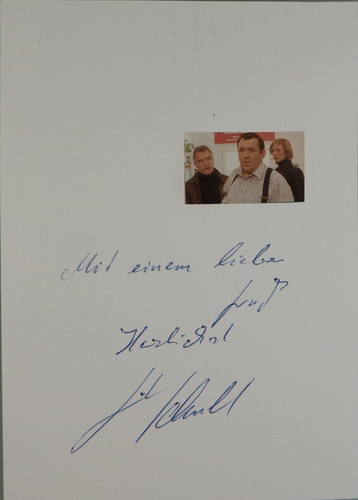 Mit einem lieben
Gruß
Herzlichst